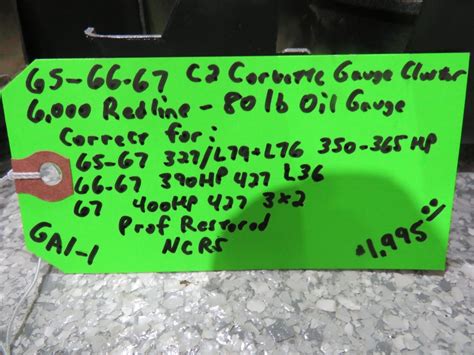 65-66-67 C2 Corvette Gauge Cluster
6,000 Redline - 80 lb Oil Gauge
Correct for:
65-67 327/L79+L76 350-365 HP
66-67 390HP 427 L36
67 400HP 427 3x2
Prof Restored
NCRS
GA1-1
$1,995.00